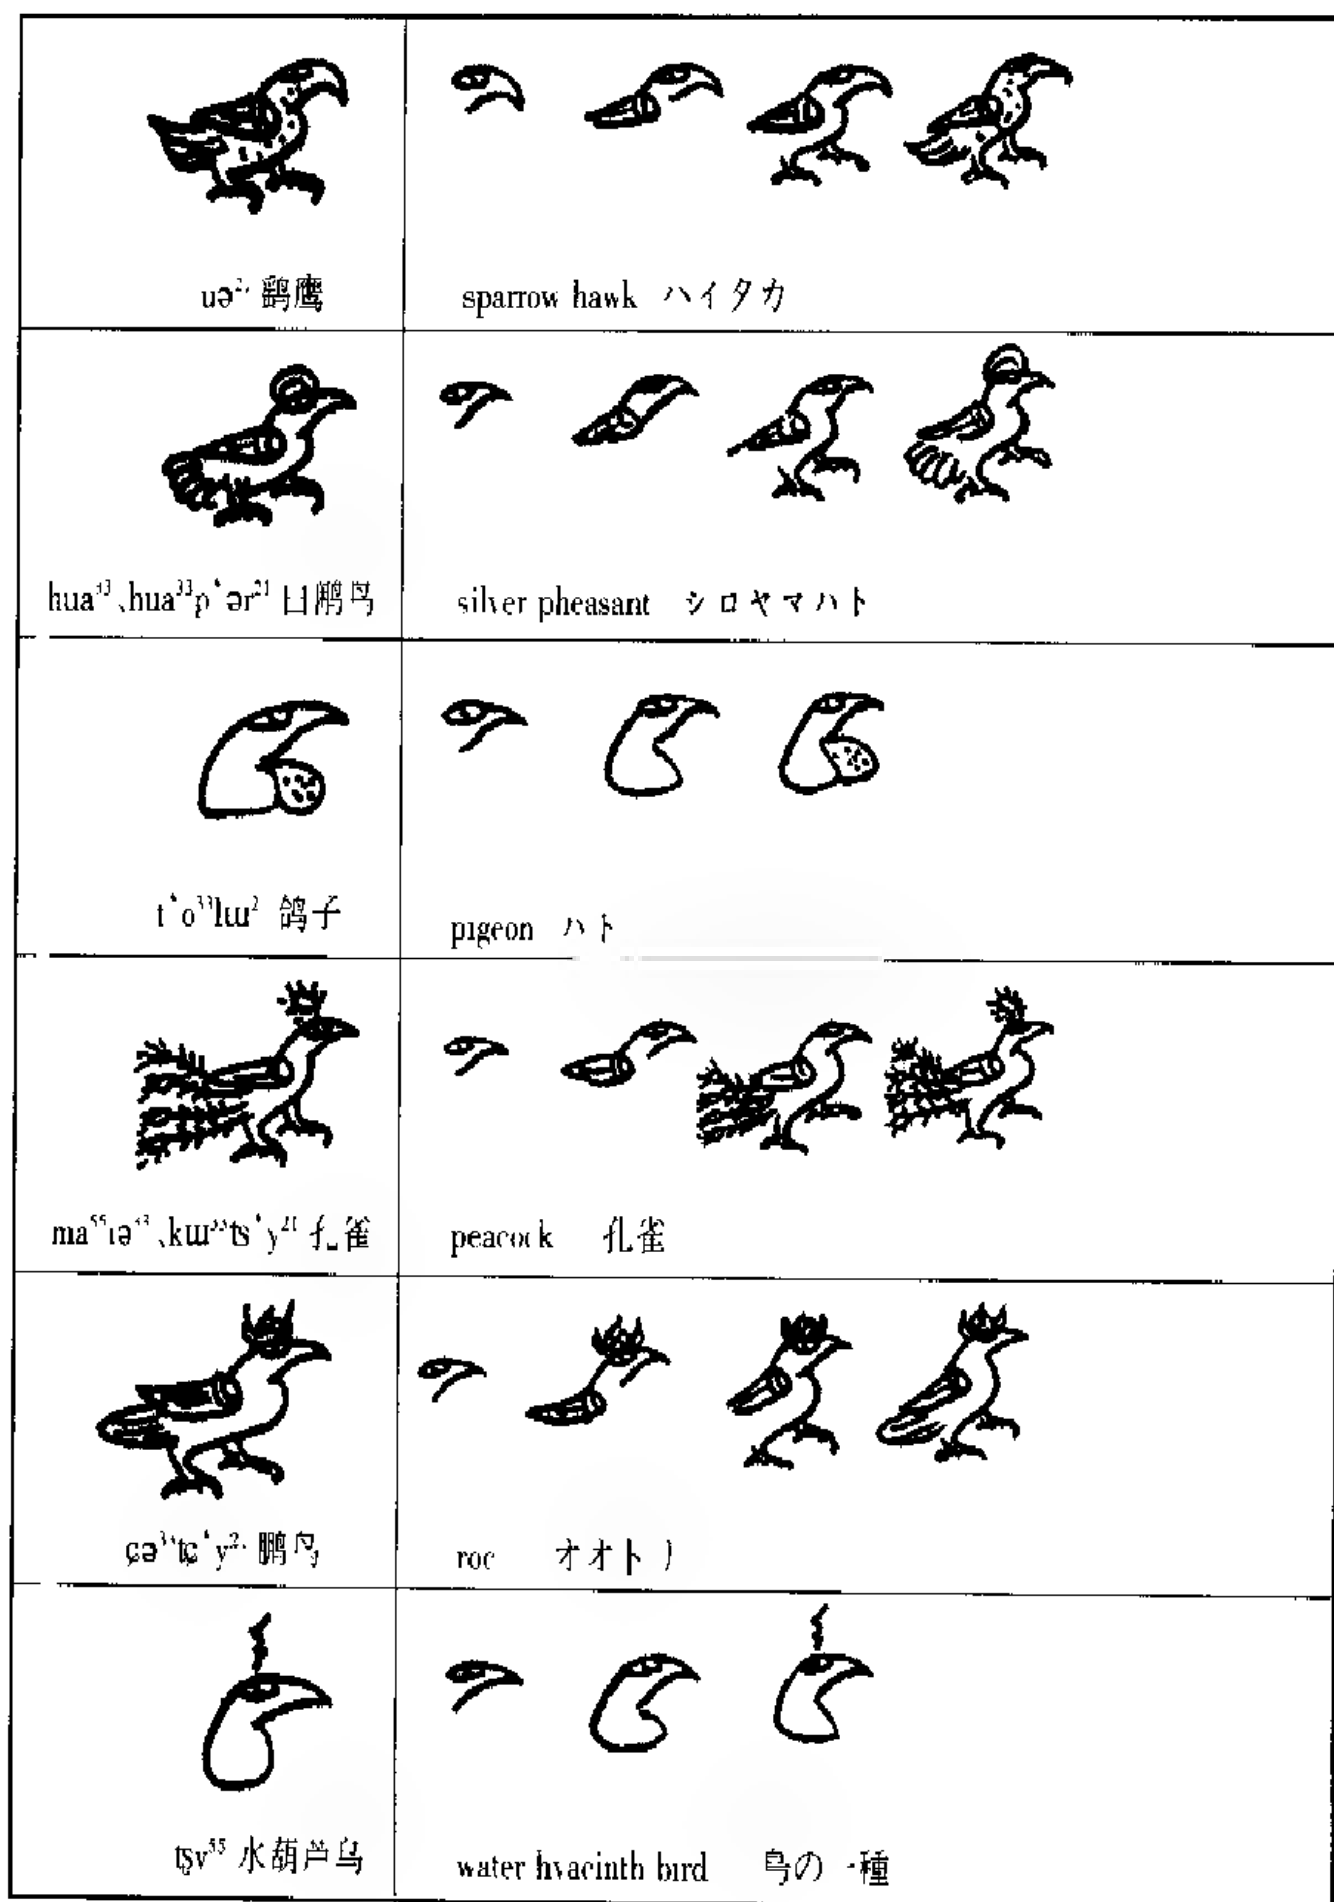 uə²¹ 鹞鹰
sparrow hawk ハイタカ
hua³³、hua³³pʻər²¹ 白鹇鸟
silver pheasant シロヤマハト
tʻo³³lɯ² 鸽子
pigeon ハト
ma⁵⁵iə³³、kɯ³³tsʻy²¹ 孔雀
peacock 孔雀
tɕʻy² 鹏鸟
roc オオトリ
tʂv⁵⁵ 水葫芦鸟
water hyacinth bird 鸟の一種